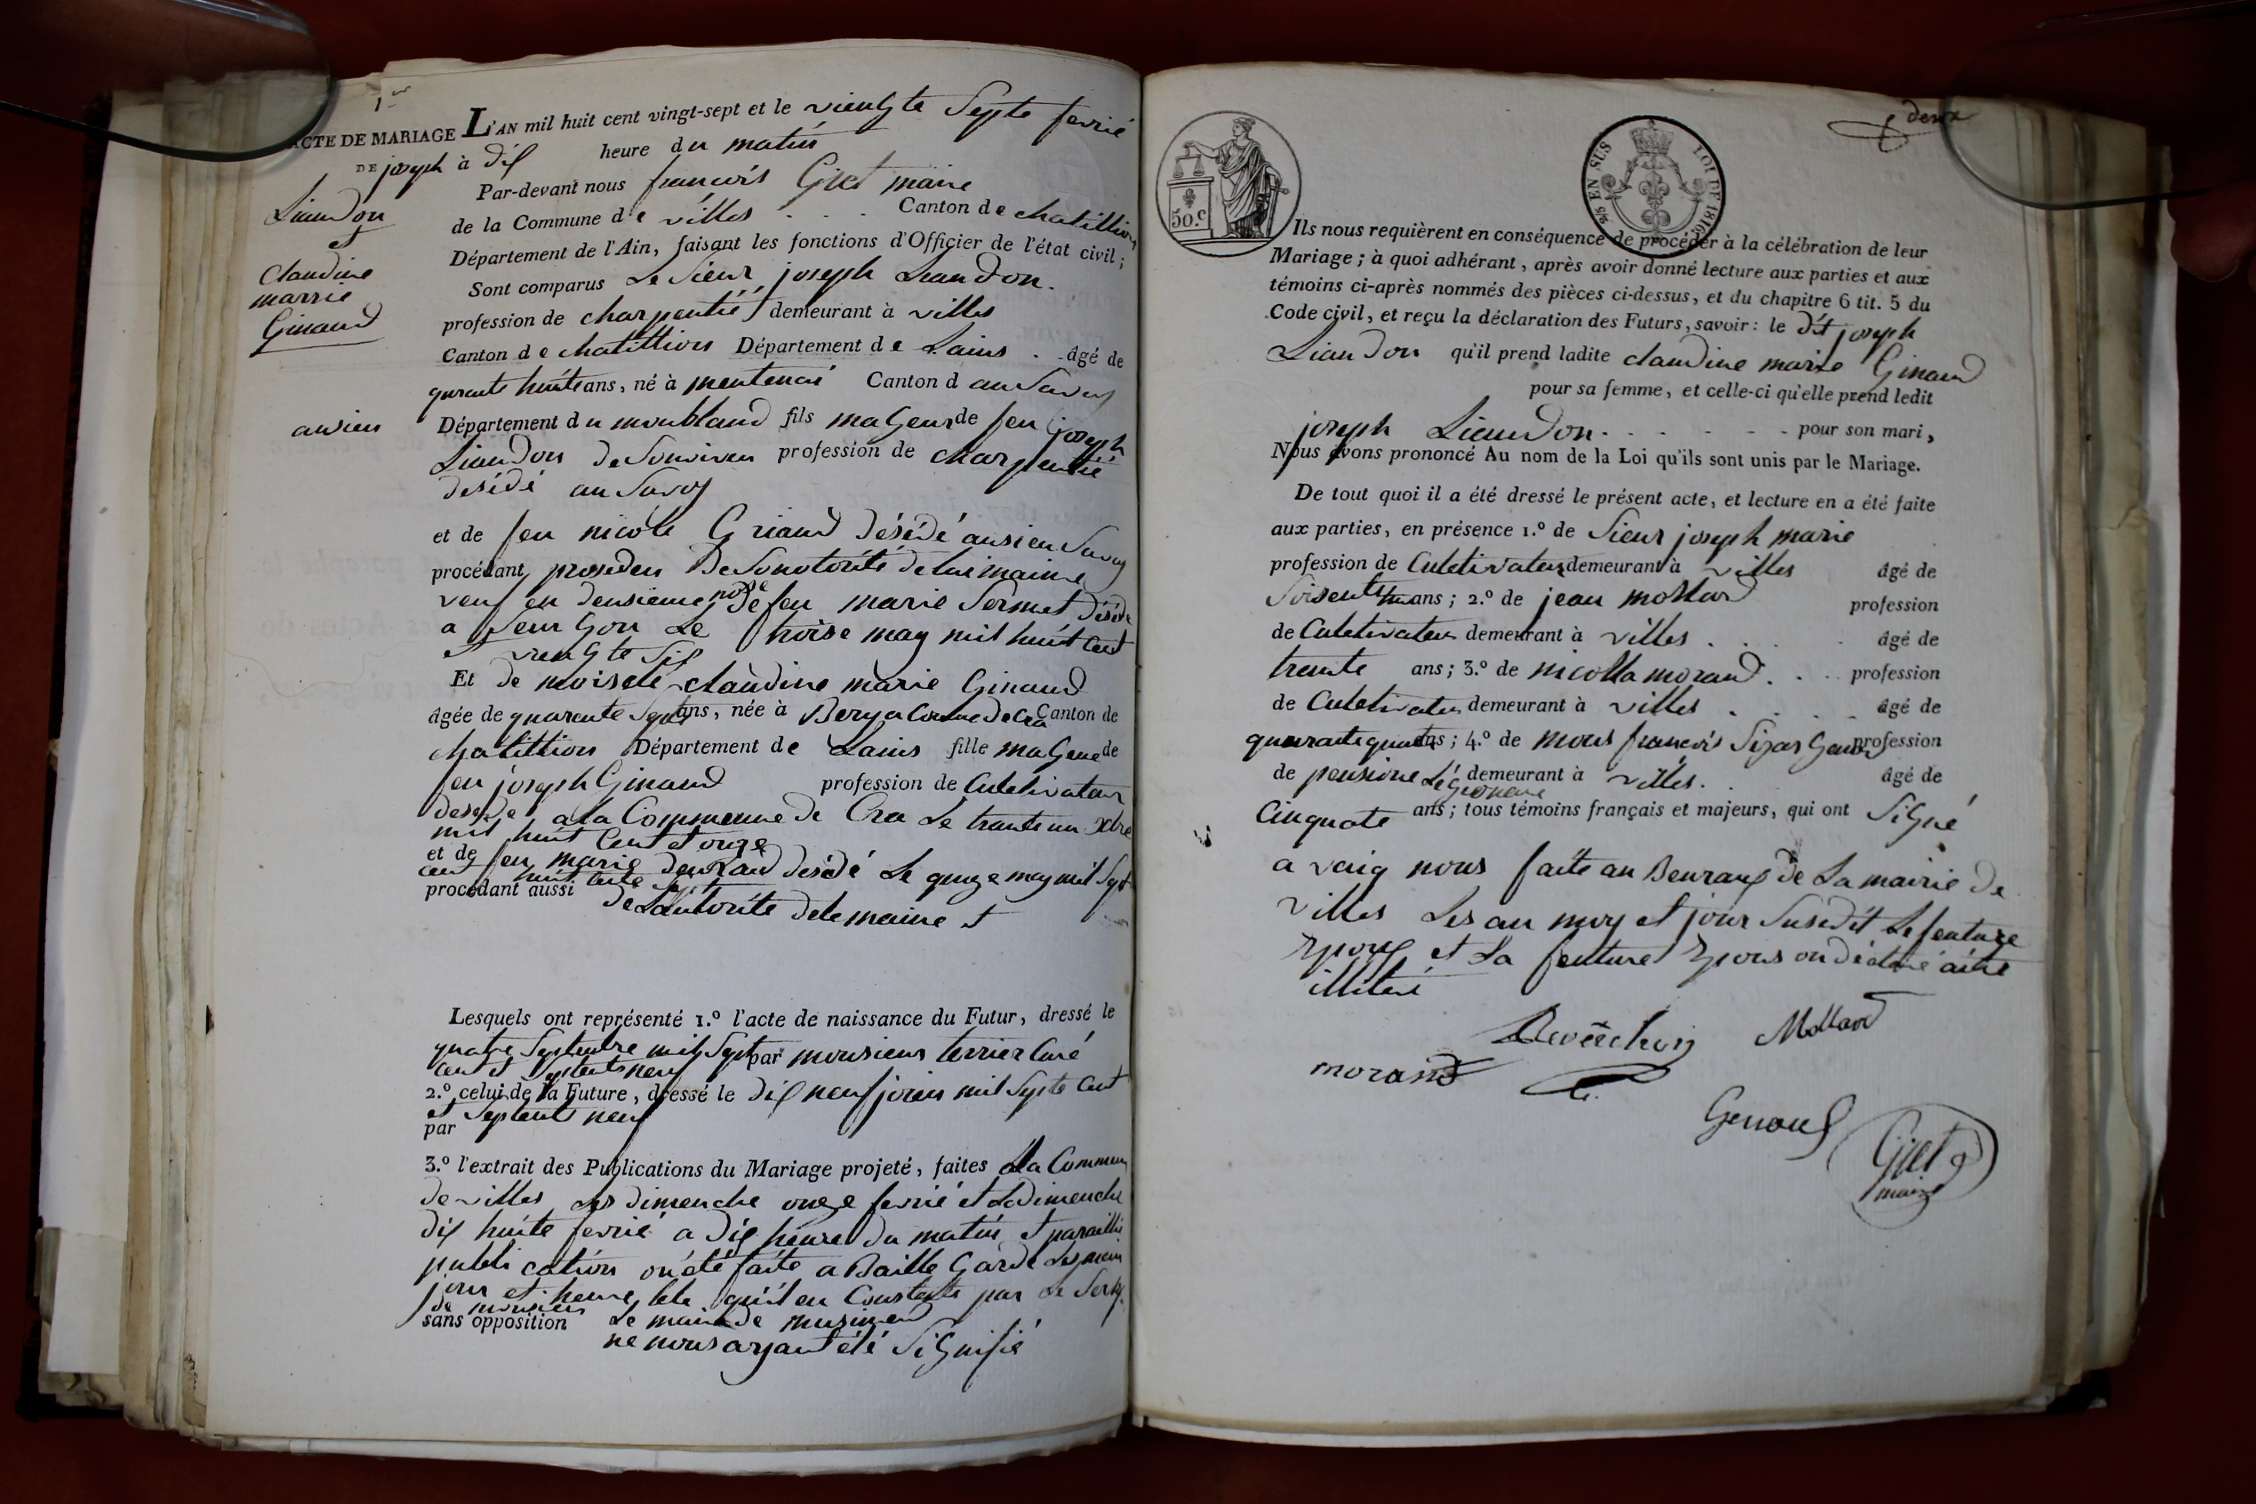 1er
ACTE DE MARIAGE
DE joseph
Liaudon
et
claudine
marrie
Ginaud
ancien
L'AN mil huit cent vingt-sept et le viengte Septe fevrié
à dix heure du matin
Par-devant nous francois Gret maire
de la Commune de villes . . . Canton de chatillion
Département de l'Ain, faisant les fonctions d'Officier de l'état civil ;
Sont comparus Le Sieur joseph Liaudon.
profession de charpentié demeurant à villes
Canton de chatillion Département de Lains . . âgé de
quraute huite ans, né à Canton d au Savoy
Département du moublaud fils mageur de feu joseph
Liaudon profession de charpentié
desédé au Savoy
et de feu nicole Griaud désédé
procédant
veuf en deusieme nose de feu marie Sermet désédé
a Seurgon Le troise may mil huit Cent
et viengte Six
Et de moisele claudine marie Ginaud
âgée de quarente Septe ans, née à Canton de
chatillion Département de Lains fille mageure de
feu joseph Ginaud profession de Culetivateur
desédé a la Commune de Cra Le trante un Xbre
mil huit Cent et onze
et de feu marie desédé Le quinze may mil Sept
cent
procédant aussi de Lautorité dele maime et
Lesquels ont représenté 1.º l'acte de naissance du Futur, dressé le
quatre Septembre mil Sept par monsieur terrier Curé
Cent et Septente neuf
2.º celui de la Future, dressé le dix neuf jouin mil Septe Cent
et Septente neuf
par
3.º l'extrait des Publications du Mariage projeté, faites a La Commune
de villes Les dimenche onze fevrié et Le dimenche
dix huite fevrié a dix heure du matin et paraillie
publi cation on été faite a Baille Garde Les meim
jour et heure tele quil en Constente par Le
de monsieur
sans opposition Le maire de musinen
ne nous ayant été Signifié
deux
50.c
5/6 EN SUS LOI DE 1816
Ils nous requièrent en conséquence de procéder à la célébration de leur
Mariage ; à quoi adhérant, après avoir donné lecture aux parties et aux
témoins ci-après nommés des pièces ci-dessus, et du chapitre 6 tit. 5 du
Code civil, et reçu la déclaration des Futurs, savoir : le dit joseph
Liaudon qu'il prend ladite claudine marie Ginaud
pour sa femme, et celle-ci qu'elle prend ledit
joseph Liaudon . . . . . . . pour son mari,
Nous avons prononcé Au nom de la Loi qu'ils sont unis par le Mariage.
De tout quoi il a été dressé le présent acte, et lecture en a été faite
aux parties, en présence 1.º de Sieur joseph marie
profession de Culetivateur demeurant à villes âgé de
ans ; 2.º de jean mollard profession
de Culetivateur demeurant à villes . . . âgé de
trente ans ; 3.º de nicolla morand . . . profession
de Culetivateur demeurant à villes . . . . âgé de
quarante quatre ans ; 4.º de mons francois profession
de pensione Légionere demeurant à villes . . âgé de
Cinquate ans ; tous témoins français et majeurs, qui ont Signé
avaiq nous faite au Beuraux de La mairie de
villes Les an moy et jour Susedit Le feuture
Epoux et La feuture Epous on déclaré aitre
illiteré
Mollard
morand
Genoux
Gret
maire